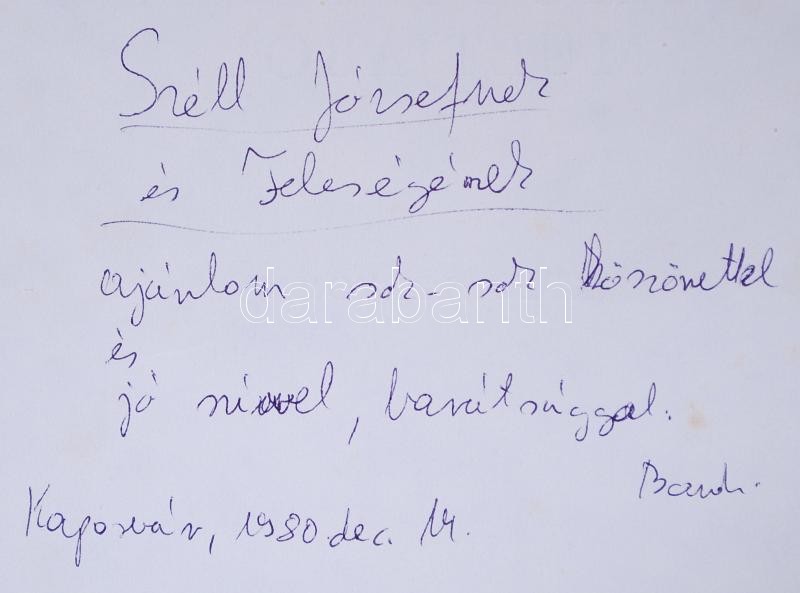 Széll Józsefnek
és Feleségének
ajánlom sok-sok köszönettel
és
jó szívvel, barátsággal.
Kaposvár, 1980 dec. 14.
darabanth